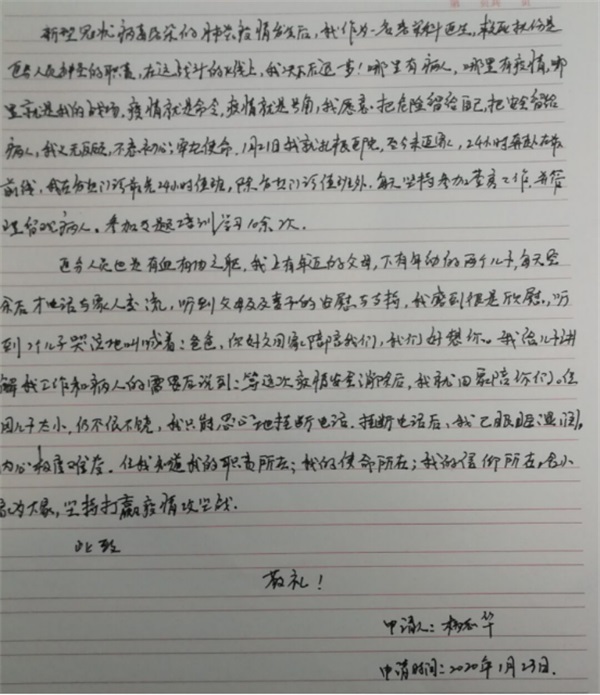 新型冠状病毒感染的肺炎疫情发生后,我作为一名感染科医生,救死扶伤是
医务人员神圣的职责,在这场战斗的火线上,我决不后退一步!哪里有病人,哪里有疫情,哪
里就是我的战场,疫情就是命令,疫情就是号角,我愿意把危险留给自己,把安全留给
病人,我义无反顾,不忘初心,牢记使命。1月21日我就扎根医院,至今未返家人,24小时奋战在最
前线,我在发热门诊带头24小时值班,除发热门诊值班外,每天坚持参加查房工作,并管
理留观病人。参加专题培训学习10余次。
医务人员也是有血有肉之躯,我上有年迈的父母,下有年幼的两个儿子,每天空
余后才电话与家人交流,听到父母及妻子的安慰与支持,我感到很是欣慰,听
到2个儿子哭泣地叫喊着:爸爸,你好久回家陪陪我们,我们好想你。我给儿子讲
解我工作和病人的需要后说到:等这次疫情安全消除后,我就回家陪你们。但
因儿子太小,仍不依不饶,我只能忍心地挂断电话。挂断电话后,我已眼眶湿润,
内心极度难荃。但我知道我的职责所在;我的使命所在;我的信仰所在,舍小
家为大家,坚持打赢疫情攻坚战。
此致
敬礼!
申请人:杨 华
申请时间:2020年1月23日.